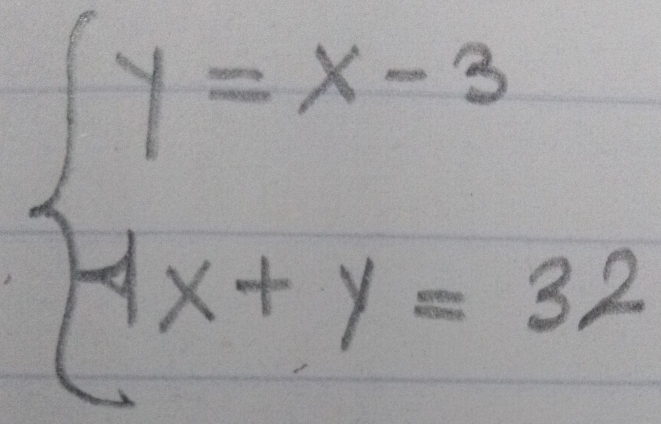 y = x - 3
4x + y = 32